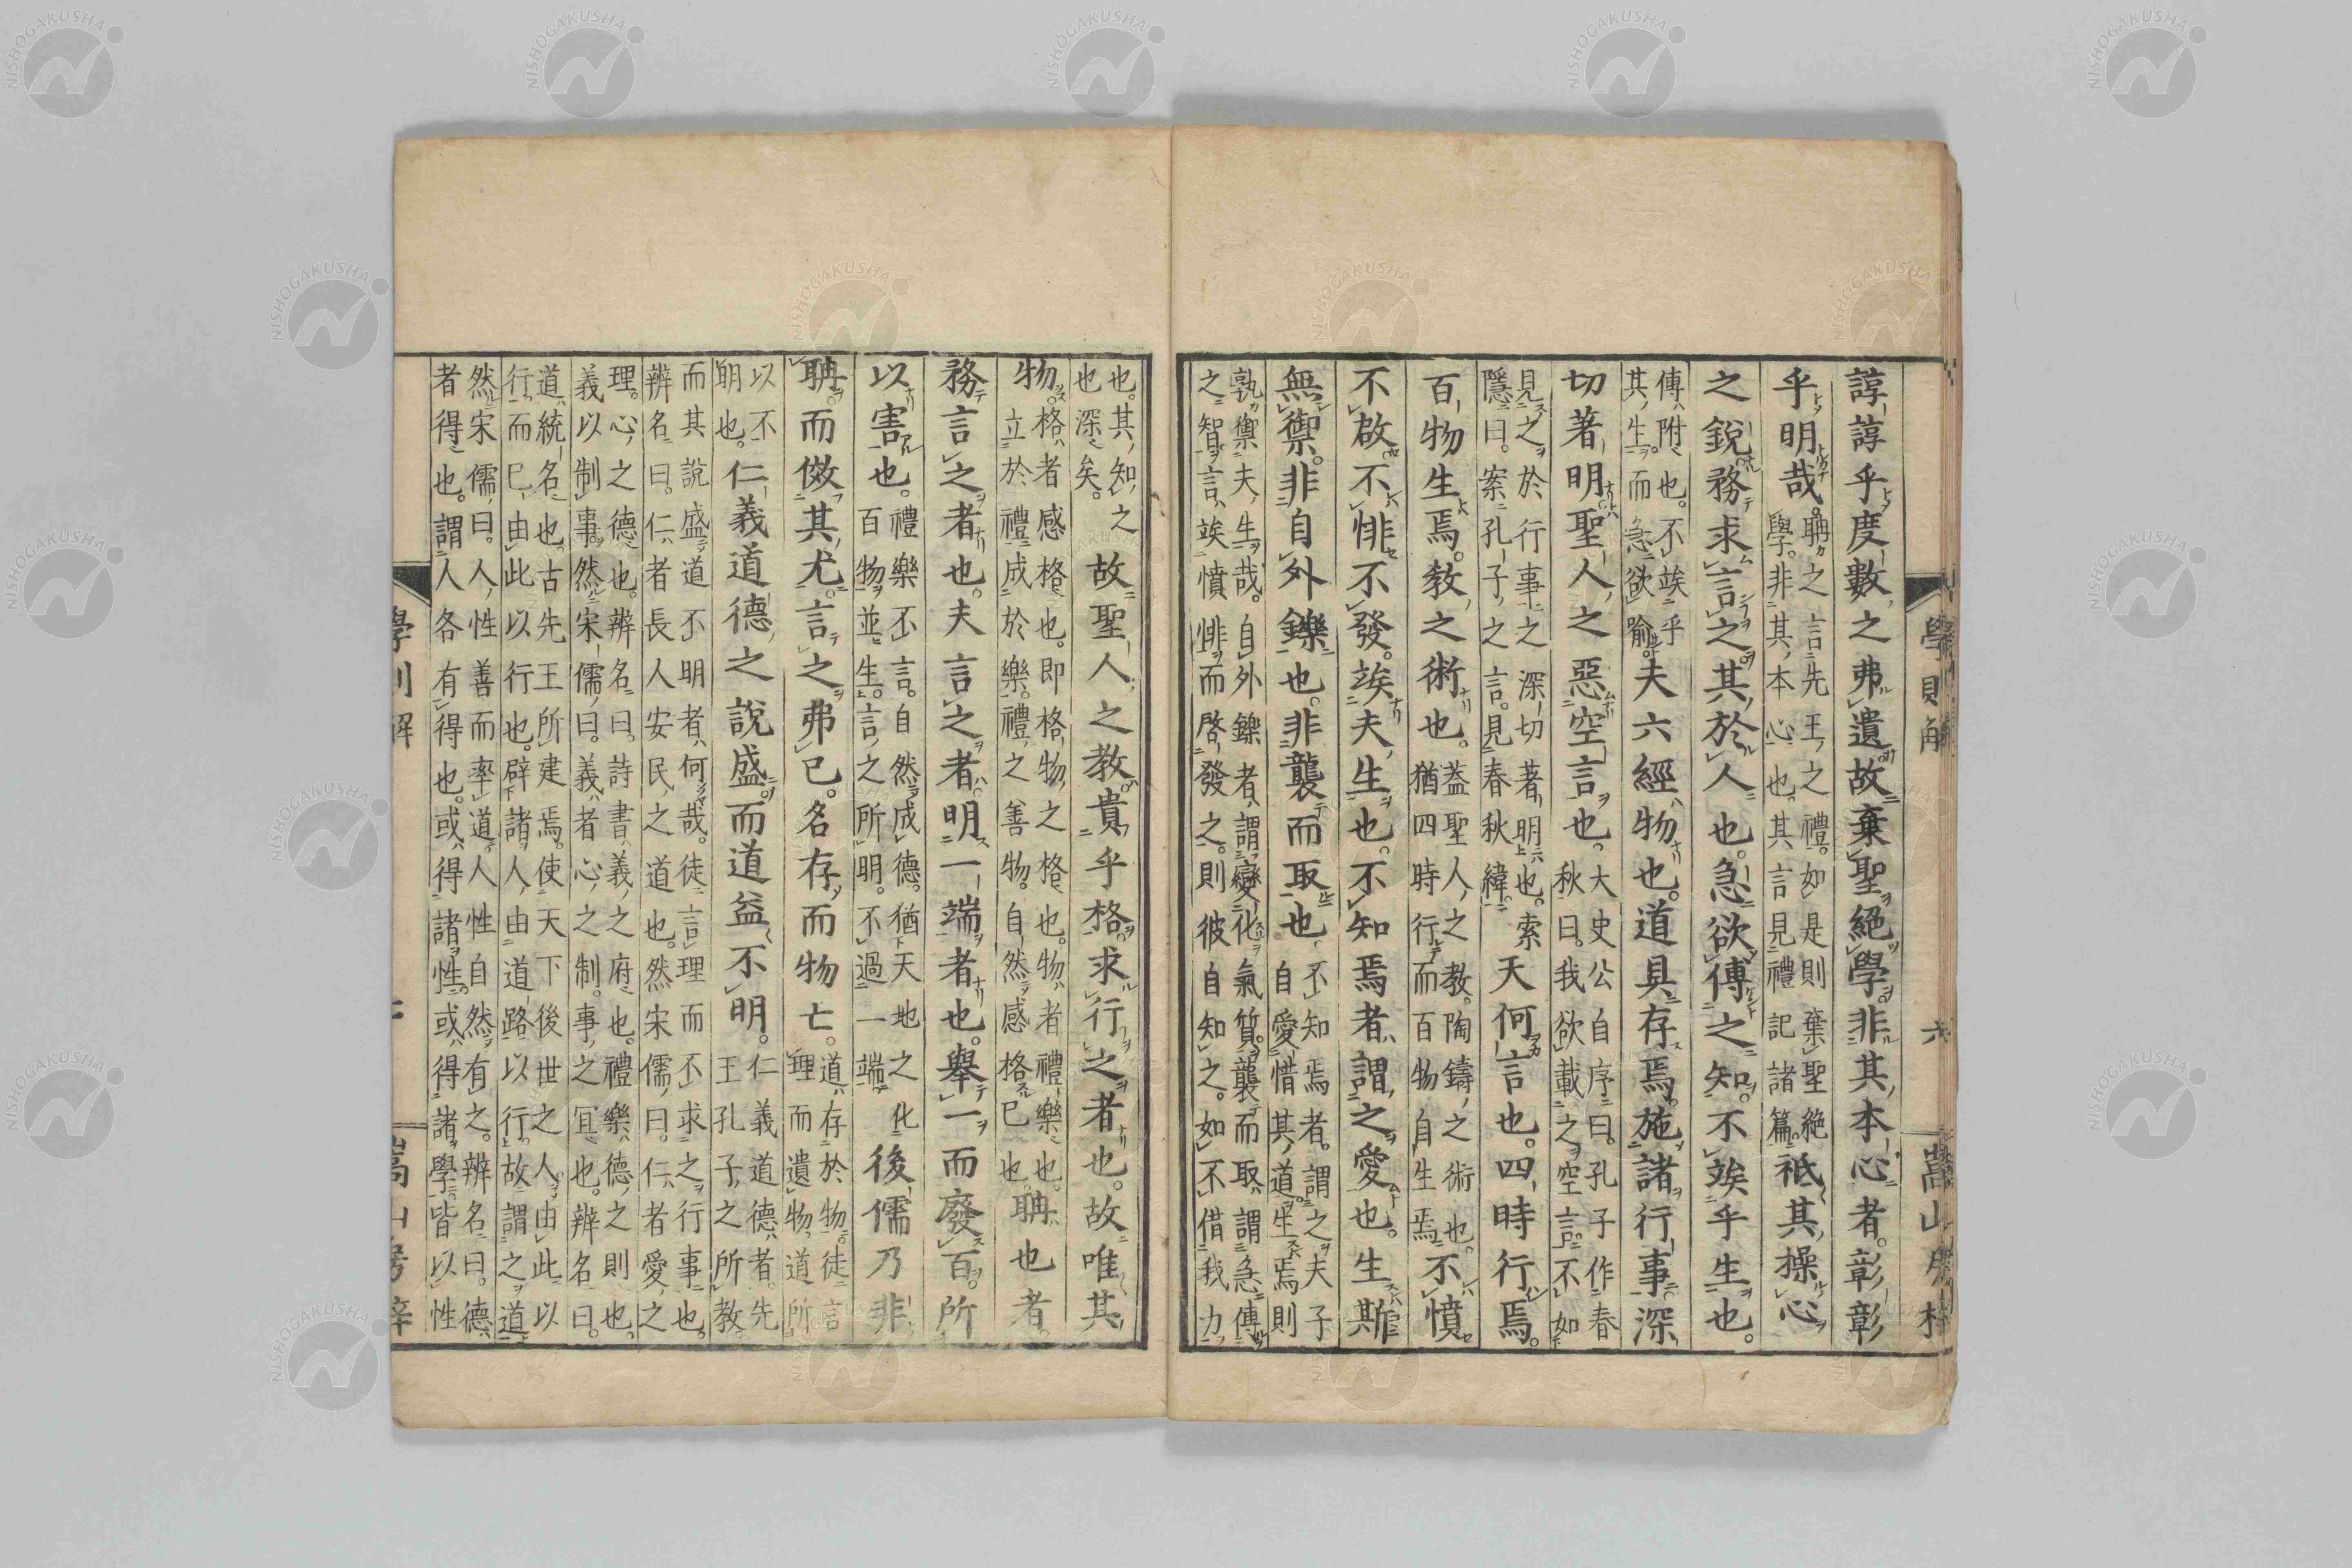 學則解 六 嵩山房梓
諄諄乎度數之弗遺故棄聖絕學非其本心者。彰彰
乎明哉。
聃之言先王之禮。如是則棄聖絕
學。非其本心也。其言見禮記諸篇。
祗其操心
之銳務求言之其於人也。急欲傅之知。不竢乎生也。
傅附也。不竢乎
其生。而急欲喻。
夫六經物也。道具存焉。施諸行事深
切著明聖人之惡空言也。
大史公自序曰。孔子作春
秋曰。我欲載之空言。不如
見之於行事之深切著明也。索
隱曰。案孔子之言。見春秋緯。
天何言也。四時行焉。
百物生焉。敎之術也。
蓋聖人之教。陶鑄之術也。
猶四時行而百物自生焉
不憤
不啟不悱不發。竢夫生也。不知焉者謂之愛也。生斯
無禦。非自外鑠也。非襲而取也。
不知焉者。謂之夫子
自愛惜其道。生焉則
孰禦夫生哉。自外鑠者、謂變化氣質。襲而取、謂急傅
之智。言竢憤悱而啓發之。則彼自知之。如不借我力
也。其知之
也深矣。
故聖人之教貴乎格求行之者也。故唯其
物。
格者感格也。即格物之格也。物者禮樂也。
立於禮成於樂。禮之善物。自然感格已也。
聃也者。
務言之者也。夫言之者。明一端者也。舉一而廢百。所
以害也。
禮樂不言。自然成德。猶天地之化
百物並生。言之所明。不過一端
後儒乃非
聃。而傚其尤。言之弗已。名存而物亡。
道存於物。徒言
理而遺物、道所
以不
明也。
仁義道德之說盛而道益不明。
仁義道德者先
王孔子之所教。
而其說盛道不明者、何哉。徒言理而不求之行事也。
辨名曰。仁者長人安民之道也。然宋儒曰。仁者愛之
理。心之德也。辨名曰。詩書義之府也。禮樂德之則也。
義以制事。然宋儒曰。義者心之制。事之冝也。辨名曰。
道統名也。古先王所建焉。使天下後世之人由此以
行。而已由此以行也。辟諸人由道路以行。故謂之道
然宋儒曰。人性善而率道人性自然有之。辨名曰。德
者得也。謂人各有得也。或得諸性。或得諸學。皆以性
學則解
嵩山房梓